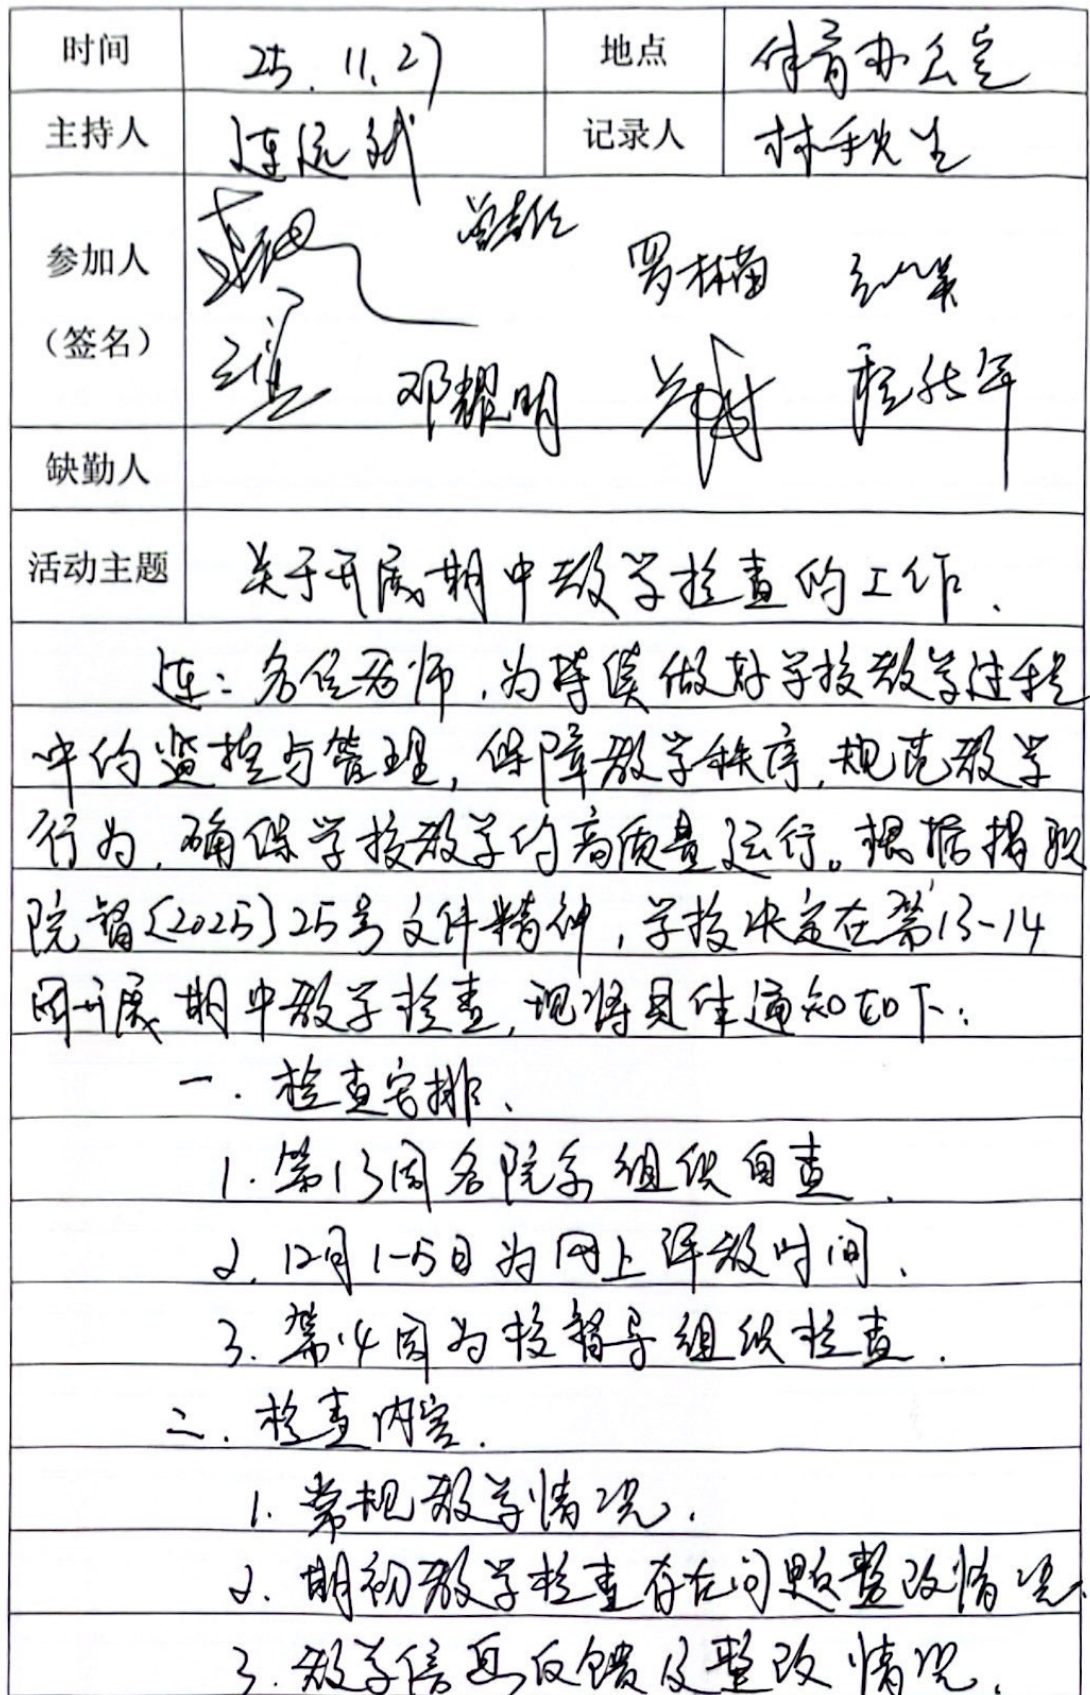 时间 25.11.27 地点 体育办公室
主持人 连远斌 记录人 林秋生
参加人
(签名)
罗林苗
邓耀明
缺勤人
活动主题 关于开展期中教学检查的工作.
连:各位老师,为持续做好学校教学过程
中的监控与管理,保障教学秩序,规范教学
行为,确保学校教学的高质量运行。根据揭职
院督〔2025〕25号文件精神,学校决定在第13-14
周开展期中教学检查,现将具体通知如下:
一.检查安排、
1.第13周各院系组织自查.
2.12月1-5日为网上评教时间.
3.第14周为校督导组织检查.
二.检查内容.
1.常规教学情况.
2.期初教学检查存在问题整改情况.
3.教学信息反馈及整改情况.